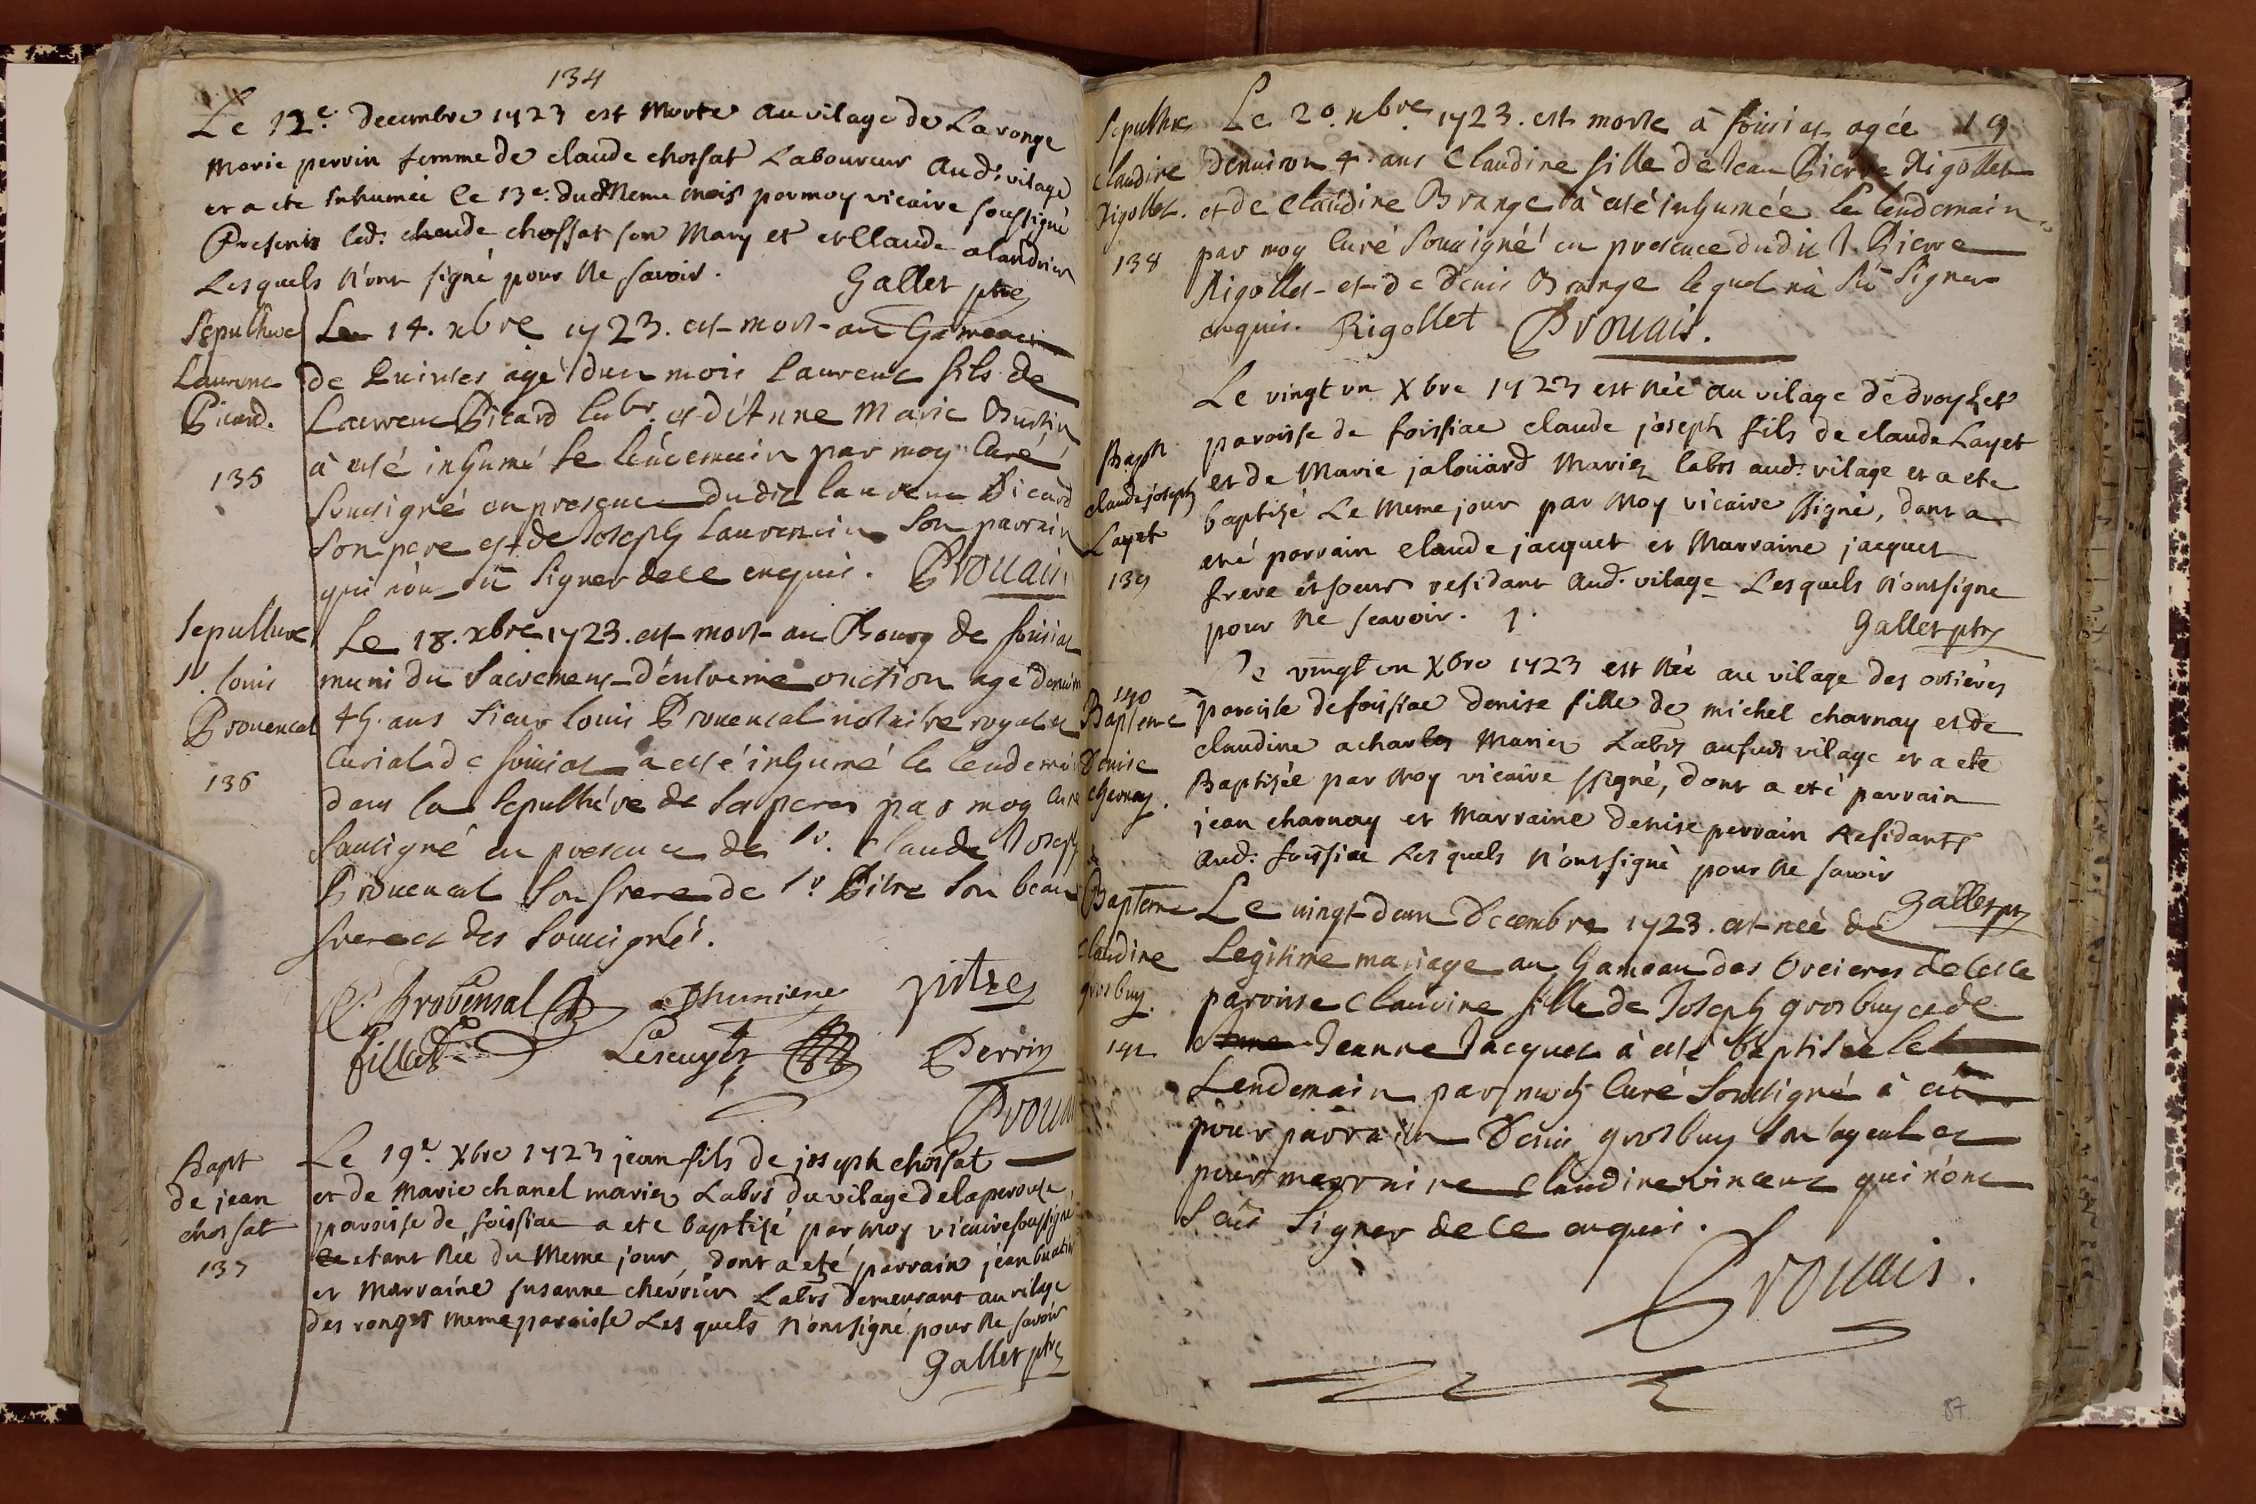 134
Le 12e. decembre 1723 est morte au vilage de Laronge
Marie perrin femme de claude chossat Laboureur aud: vilage
et a ete inhumée le 13e. dud meme mois par moy vicaire soussigné
Presents led: claude chossat son Mary et claude alandrin
Lesquels n'ont signé pour ne savoir.
Gallet ptre
Sepulture
Laurent
Picard.
135
Le 14. xbre 1723. est mort au hameau
de agé d'un mois Laurent fils de
Laurent Picard labr et d'Anne Marie
à esté inhumé le lendemain par moy Curé
soussigné en presence dudit laurent Picard
son pere et de Joseph Laurencin son parrain
qui n'ont sü signer de ce enquis. Prouais
Sepulture
Sr. louis
Prouencal
136
Le 18. xbre 1723. est mort au Bourg de foissiat
muni du Sacrement d'extreme onction agé denuiron
45. ans Sieur louis Prouencal notaire royal et
Curial de foissiat a esté inhumé le lendemain
dans la Sepulture de ses peres par moy Curé
soussigné en presence de Sr. Claude Joseph
Prouencal son frere de Sr. Pitre son beau
frere et des soussignés.
C. J. Provensal
pitre
Lescuyer
Perrin
Prouais
Bapt
de jean
chossat
137
Le 19e. Xbre 1723 jean fils de joseph chossat
et de Marie chanel mariez Labrs du vilage de laperouse
paroisse de foissiac a ete baptisé par moy vicaire soussigné
etant née du meme jour, dont a eté parrain jean
et Marraine susanne chevrier Labrs demeurant au vilage
des ronges meme paroisse Lesquels n'ont signé pour ne savoir
Gallet ptre
19
Sepulture
Claudine
Rigollet.
138
Le 20. xbre 1723. est morte à foissiat agée
denuiron 4 ans Claudine fille de Jean Pierre Rigollet
et de Claudine Brange à esté inhumée le lendemain
par moy Curé soussigné en presence dudit J. Pierre
Rigollet et de Denis Brange lequel n'a sü signer
enquis. Rigollet Prouais.
Bapt
claude joseph
Layet
139
Le vingt un Xbre 1723 est née au vilage de droyset
paroisse de foissiac claude joseph fils de claude Layet
et de Marie jaloüard Mariez labrs aud: vilage et a ete
baptisé Le meme jour par moy vicaire ssigné, dont a
eté parrain claude jacquet et Marraine jacquet
frere et soeur residant aud. vilage Lesquels n'ont signe
pour ne scavoir.
Gallet ptre
140
Bapteme
Denise
charnay.
Le vingt un Xbre 1723 est née au vilage des orsieres
paroisse de foissiac denise fille de michel charnay et de
claudine acharles Mariez Labrs au vilage et a eté
Baptisée par moy vicaire ssigné, dont a eté parrain
jean charnay et Marraine denise perrain Residants
aud: foissiac Lesquels n'ont signé pour ne savoir
Gallet ptre
Bapteme
Claudine
grosbuy.
141
Le vingt-deux Decembre 1723. est née de
Legitime mariage au hameau des Orcieres de cette
paroisse Claudine fille de Joseph grosbuy et de
Jeanne Jacquet à esté baptisée le
Lendemain par moy Curé Soussigné à eü
pour parrain Denis grosbuy son ayeul et
pour marraine Claudine vincent qui n'ont
sceü signer de ce enquis.
Prouais.
87